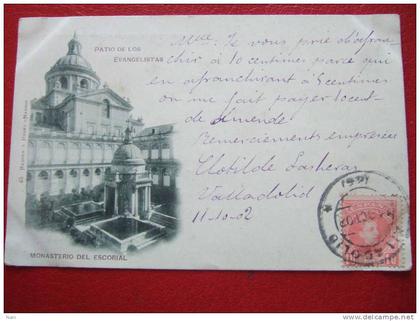 PATIO DE LOS
EVANGELISTAS
Mlle. Je vous prie d'afran-
chir à 10 centimes parce qui
en afranchirant à 5 centimes
on me fait payer 10 cent-
de amende
Remerciements empressés
Clotilde Lasheras
Valladolid
11-10-02
MONASTERIO DEL ESCORIAL